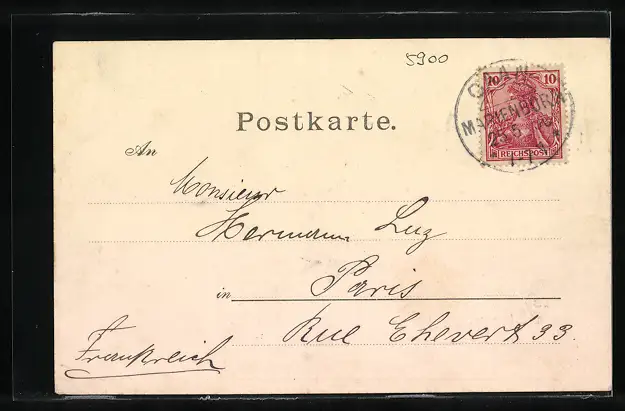 5900
10 10
MARIENBORN
REICHSPOST
Postkarte.
An
Monsieur
Hermann Luz
in Paris
Rue Chevert 33.
Frankreich